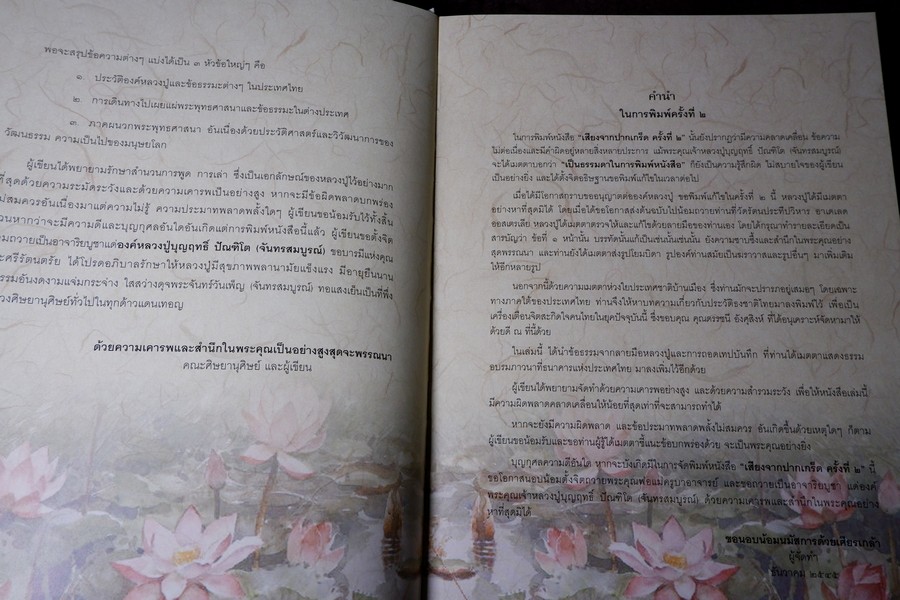 พอจะสรุปข้อความต่างๆ แบ่งได้เป็น ๓ หัวข้อใหญ่ๆ คือ
๑. ประวัติองค์หลวงปู่และข้อธรรมะต่างๆ ในประเทศไทย
๒. การเดินทางไปเผยแผ่พระพุทธศาสนาและข้อธรรมะในต่างประเทศ
๓. ภาคผนวกพระพุทธศาสนา อันเนื่องด้วยประวัติศาสตร์และวิวัฒนาการของ
วัฒนธรรม ความเป็นไปของมนุษยโลก
ผู้เขียนได้พยายามรักษาสำนวนการพูด การเล่า ซึ่งเป็นเอกลักษณ์ของหลวงปู่ไว้อย่างมาก
ที่สุดด้วยความระมัดระวังและด้วยความเคารพเป็นอย่างสูง หากจะมีข้อผิดพลาดบกพร่อง
ไม่สมควรอันเนื่องมาแต่ความไม่รู้ ความประมาทพลาดพลั้งใดๆ ผู้เขียนขอน้อมรับไว้ทั้งสิ้น
วนหากว่าจะมีความดีและบุญกุศลอันใดอันเกิดแต่การพิมพ์หนังสือนี้แล้ว ผู้เขียนขอตั้งจิต
มถวายเป็นอาจาริยบูชาแด่องค์หลวงปู่บุญฤทธิ์ ปัณฑิโต (จันทรสมบูรณ์) ขอบารมีแห่งคุณ
ะศรีรัตนตรัย ได้โปรดอภิบาลรักษาให้หลวงปู่มีสุขภาพพลานามัยแข็งแรง มีอายุยืนนาน
รรมอันงดงามแจ่มกระจ่าง ใสสว่างดุจพระจันทร์วันเพ็ญ (จันทรสมบูรณ์) ทอแสงเย็นเป็นที่พึ่ง
วงศิษยานุศิษย์ทั่วไปในทุกด้าวแดนเทอญ
ด้วยความเคารพและสำนึกในพระคุณเป็นอย่างสูงสุดจะพรรณนา
คณะศิษยานุศิษย์ และผู้เขียน
คำนำ
ในการพิมพ์ครั้งที่ ๒
ในการพิมพ์หนังสือ "เสียงจากปากเกร็ด ครั้งที่ ๑" นั้นยังปรากฏว่ามีความคลาดเคลื่อน ข้อความ
ไม่ต่อเนื่องและมีคำผิดอยู่หลายสิ่งหลายประการ แม้พระคุณเจ้าหลวงปู่บุญฤทธิ์ ปัณฑิโต (จันทรสมบูรณ์)
จะได้เมตตาบอกว่า "เป็นธรรมดาในการพิมพ์หนังสือ" ก็ยังเป็นความรู้สึกผิด ไม่สบายใจของผู้เขียน
เป็นอย่างยิ่ง และได้ตั้งจิตอธิษฐานขอพิมพ์แก้ไขในเวลาต่อไป
เมื่อได้มีโอกาสกราบขออนุญาตต่อองค์หลวงปู่ ขอพิมพ์แก้ไขในครั้งที่ ๒ นี้ หลวงปู่ได้มีเมตตา
อย่างหาที่สุดมิได้ โดยเมื่อได้ขอโอกาสส่งต้นฉบับไปน้อมถวายท่านที่วัดรัตนประทีปวิหาร อาเดเลด
ออสเตรเลีย หลวงปู่ได้เมตตาตรวจให้และแก้ไขด้วยลายมือของท่านเอง โดยได้กรุณาทำรายละเอียดเป็น
สารบัญว่า ข้อที่ ๑ หน้านั้น บรรทัดนั้นแก้เป็นเช่นนั้นเช่นนั้น ยังความซาบซึ้งและสำนึกในพระคุณอย่าง
สุดพรรณนา และท่านยังได้เมตตาส่งรูปโยมบิดา รูปองค์ท่านสมัยเป็นฆราวาสและรูปอื่นๆ มาเพิ่มเติม
ให้อีกหลายรูป
นอกจากนี้ด้วยความเมตตาห่วงใยประเทศชาติบ้านเมือง ซึ่งท่านมักจะปรารภอยู่เสมอๆ โดยเฉพาะ
ทางภาคใต้ของประเทศไทย ท่านจึงให้หาบทความเกี่ยวกับประวัติธงชาติไทยมาลงพิมพ์ไว้ เพื่อเป็น
เครื่องเตือนจิตสะกิดใจคนไทยในยุคปัจจุบันนี้ ซึ่งขอบคุณ คุณดรรชนี อังศุสิงห์ ที่ได้อนุเคราะห์จัดหามาให้
ด้วยดี ณ ที่นี้ด้วย
ในเล่มนี้ ได้นำข้อธรรมจากลายมือหลวงปู่และการถอดเทปบันทึก ที่ท่านได้เมตตาแสดงธรรม
อบรมภาวนาที่ธนาคารแห่งประเทศไทย มาลงเพิ่มไว้อีกด้วย
ผู้เขียนได้พยายามจัดทำด้วยความเคารพอย่างสูง และด้วยความสำรวมระวัง เพื่อให้หนังสือเล่มนี้
มีความผิดพลาดคลาดเคลื่อนให้น้อยที่สุดเท่าที่จะสามารถทำได้
หากจะยังมีความผิดพลาด และข้อประมาทพลาดพลั้งไม่สมควร อันเกิดขึ้นด้วยเหตุใดๆ ก็ตาม
ผู้เขียนขอน้อมรับและขอท่านผู้รู้ได้เมตตาชี้แนะข้อบกพร่องด้วย จะเป็นพระคุณอย่างยิ่ง
บุญกุศลความดีอันใด หากจะบังเกิดมีในการจัดพิมพ์หนังสือ "เสียงจากปากเกร็ด ครั้งที่ ๒" นี้
ขอโอกาสนอบน้อมตั้งจิตถวายพระคุณพ่อแม่ครูบาอาจารย์ และขอถวายเป็นอาจาริยบูชา แด่องค์
พระคุณเจ้าหลวงปู่บุญฤทธิ์ ปัณฑิโต (จันทรสมบูรณ์) ด้วยความเคารพและสำนึกในพระคุณอย่าง
หาที่สุดมิได้
ขอนอบน้อมนมัสการด้วยเศียรเกล้า
ผู้จัดทำ
ธันวาคม ๒๕๔๕